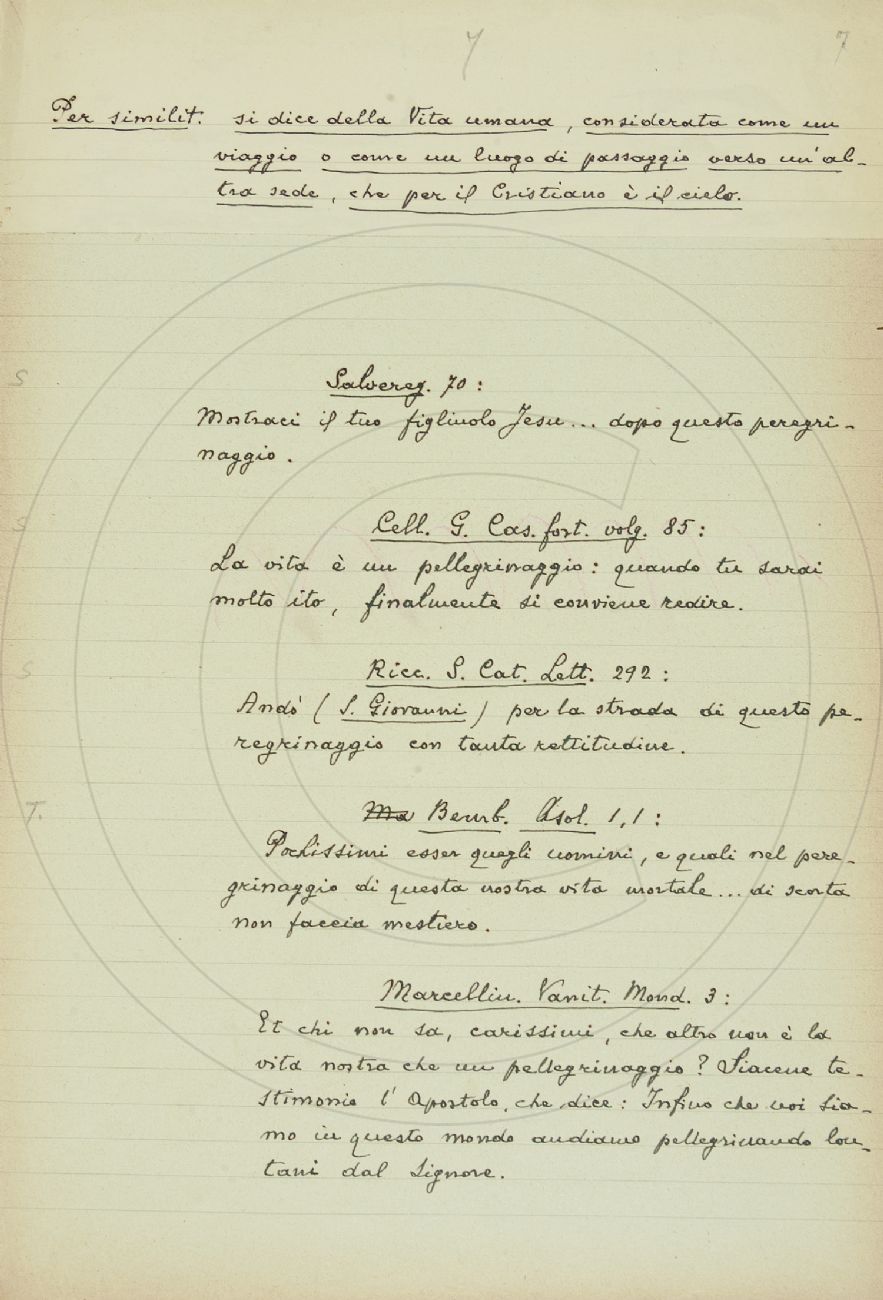 7 7
Per similit. si dice della Vita umana, considerata come un
viaggio o come un luogo di passaggio verso un'al-
tra sede, che per il Cristiano è il cielo.
S
Salvereg. 70:
Mostraci il tuo figliuolo Jesu... dopo questo peregri-
naggio.
S
Cell. G. Cas. fort. volg. 85:
La vita è un pellegrinaggio: quando tu sarai
molto ito, finalmente si conviene redire.
S
Ricc. S. Cat. Lett. 292:
Andò (S. Giovanni) per la strada di questo pe-
regrinaggio con tanta rettitudine.
T.
Ma Bemb. Asol. 1,1:
Pochissimi esser quegli uomini, a quali nel pere-
grinaggio di questa nostra vita mortale... di scorta
non faccia mestiero.
Marcellin. Vanit. Mond. 3:
Et chi non sa, carissimi, che altro non è la
vita nostra che un pellegrinaggio? Siacene te-
stimonio l'Apostolo, che dice: Infino che noi sia-
mo in questo mondo andiamo pellegrinando lon-
tani dal Signore.